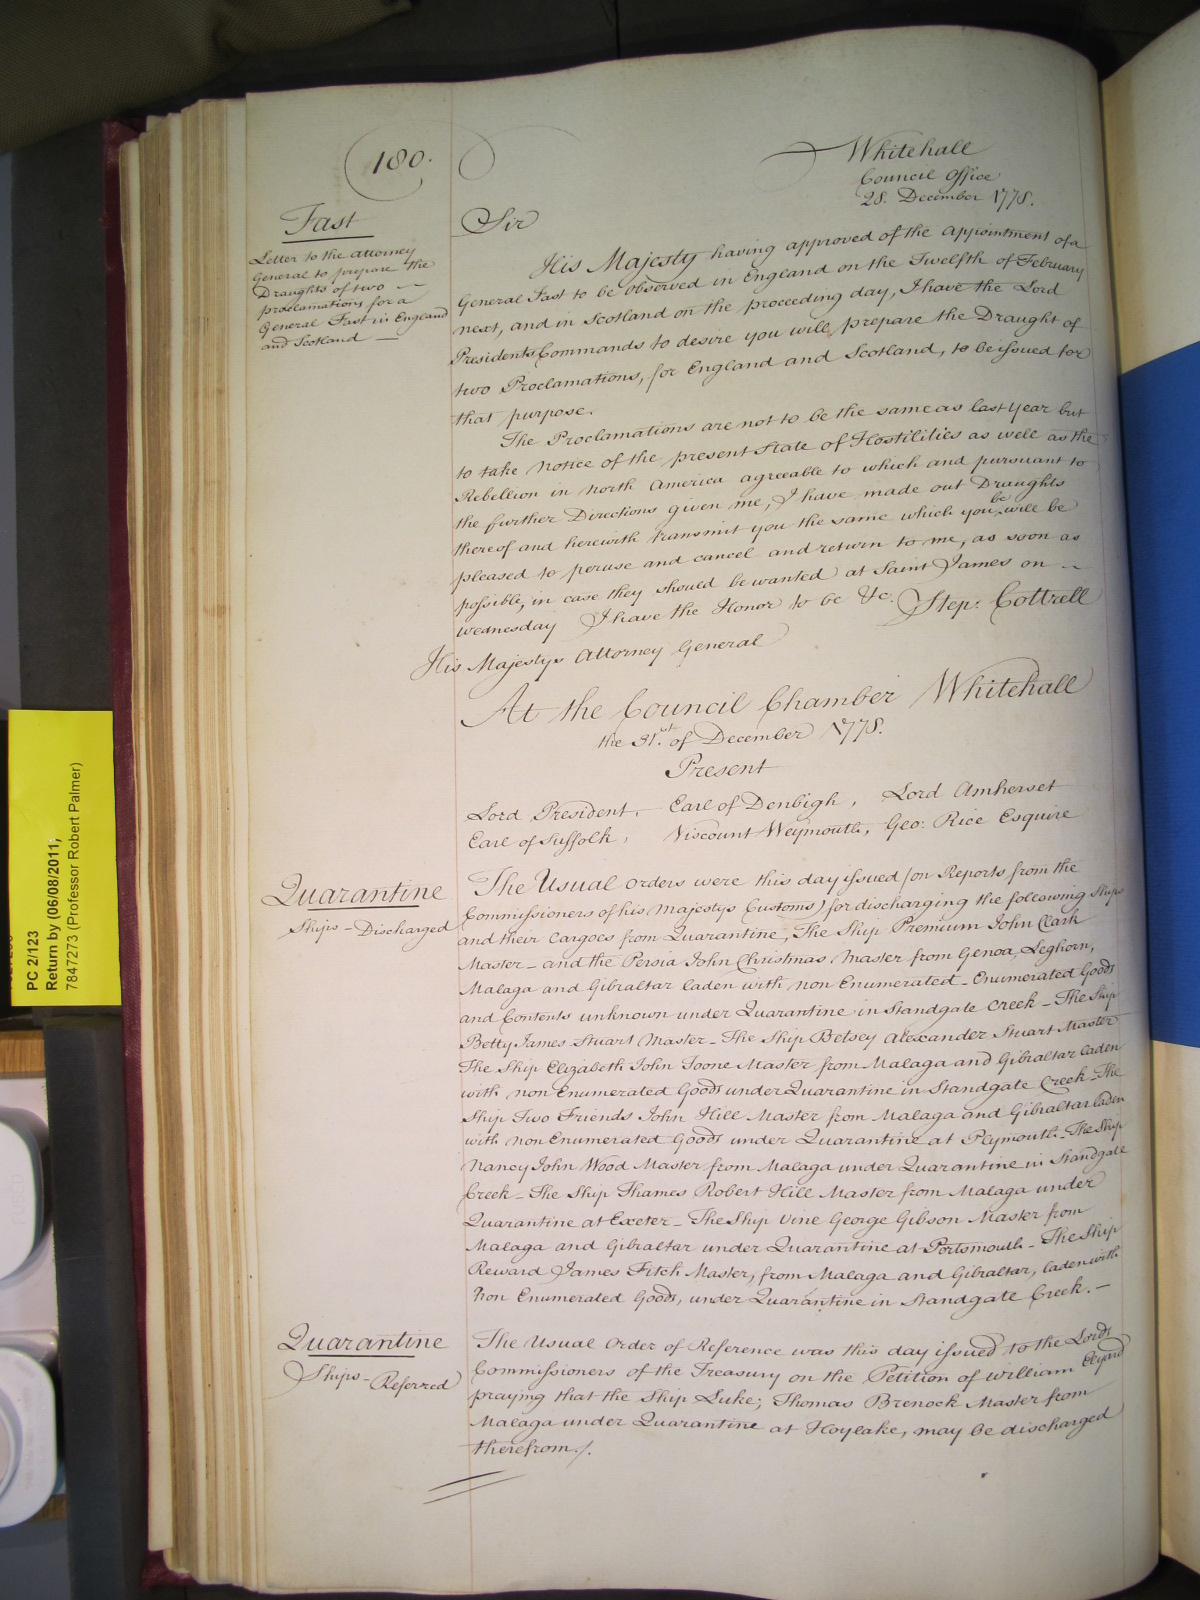 180.
Whitehall
Council Office
28. December 1778.
Fast
Letter to the Attorney
General to prepare the
Draughts of two
proclamations for a
General Fast in England
and Scotland
Sir
His Majesty having approved of the appointment of a
General Fast to be observed in England on the Twelfth of February
next, and in Scotland on the proceeding day, I have the Lord
Presidents Commands to desire you will prepare the Draught of
two Proclamations, for England and Scotland, to be issued for
that purpose.
The Proclamations are not to be the same as last year but
to take notice of the present State of Hostilities as well as the
Rebellion in North America agreeable to which and pursuant to
the further Directions given me, I have made out Draughts
thereof and herewith transmit you the same which you be will be
pleased to peruse and cancel and return to me, as soon as
possible, in case they should be wanted at Saint James on
Wednesday I have the Honor to be &c. Step: Cottrell
His Majestys Attorney General
At the Council Chamber Whitehall
the 31st. of December 1778.
Present
Lord President, Earl of Denbigh, Lord Amherset
Earl of Suffolk, Viscount Weymouth, Geo: Rice Esquire
Quarantine
Ships - Discharged
The Usual Orders were this day issued (on Reports from the
Commissioners of his Majestys Customs) for discharging the following Ships
and their Cargoes from Quarantine, The Ship Premium John Clark
Master - and the Persia John Christmas Master from Genoa, Leghorn,
Malaga and Gibraltar laden with non Enumerated - Enumerated Goods
and Contents unknown under Quarantine in Standgate Creek - The Ship
Betty James Stuart Master - The Ship Betsey Alexander Stuart Master
The Ship Elizabeth John Toone Master from Malaga and Gibraltar laden
with non Enumerated Goods under Quarantine in Standgate Creek - The
Ship Two Friends John Hill Master from Malaga and Gibraltar laden
with non Enumerated Goods under Quarantine at Plymouth - The Ship
Nancy John Wood Master from Malaga under Quarantine in Standgate
Creek - The Ship Thames Robert Hill Master from Malaga under
Quarantine at Exeter - The Ship Vine George Gibson Master from
Malaga and Gibraltar under Quarantine at Portsmouth - The Ship
Reward James Fitch Master, from Malaga and Gibraltar, laden with
Non Enumerated Goods, under Quarantine in Standgate Creek. -
Quarantine
Ships - Referred
The Usual Order of Reference was this day issued to the Lords
Commissioners of the Treasury on the Petition of William Elyard
praying that the Ship Luke; Thomas Brenock Master from
Malaga under Quarantine at Hoylake, may be discharged
therefrom ./.
PC 2/123
Return by (06/08/2011;
7847273 (Professor Robert Palmer)